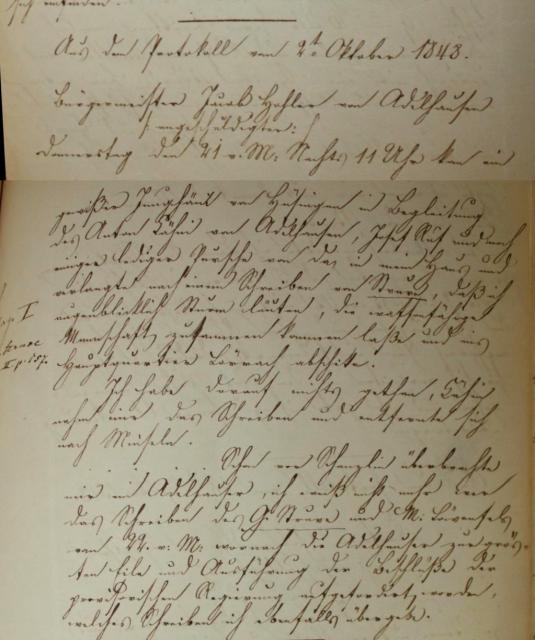 sich entfernten.
Aus dem Protokoll vom 2t. Oktober 1848.
Bürgermeister Jacob Hohler von Adelhausen
(angeschuldigter:)
Donnerstag den 21 v. M. Nachts 11 Uhr kam ein
gewißer Junghänel von Hüsingen in Begleitung
des Anton Kähni von Adelhausen, Josef Rüst und noch
einiger lediger Pursche von da, in mein Haus und
verlangte nach einem Schreiben von Struve, daß ich
augenblicklich Sturm läuten, die waffenfähige
Mannschaft zusammen kommen laße und ins
Hauptquartier Lörrach abschike.
Ich habe darauf nichts gethan, Kähni
nahm mir das Schreiben und entfernte sich
nach Minseln.
überbrachte
mir in Adelhausen, ich weiß nicht mehr wer
das Schreiben des G. Struve und M. Löwenfels
von 22. v. M. wornach die Adelhauser zur größ-
ten Eile und Ausführung der Beschlüße der
provisorischen Regierung aufgefordert worden,
welches Schreiben ich ebenfalls übergebe.
I
Struve
II p. 157.